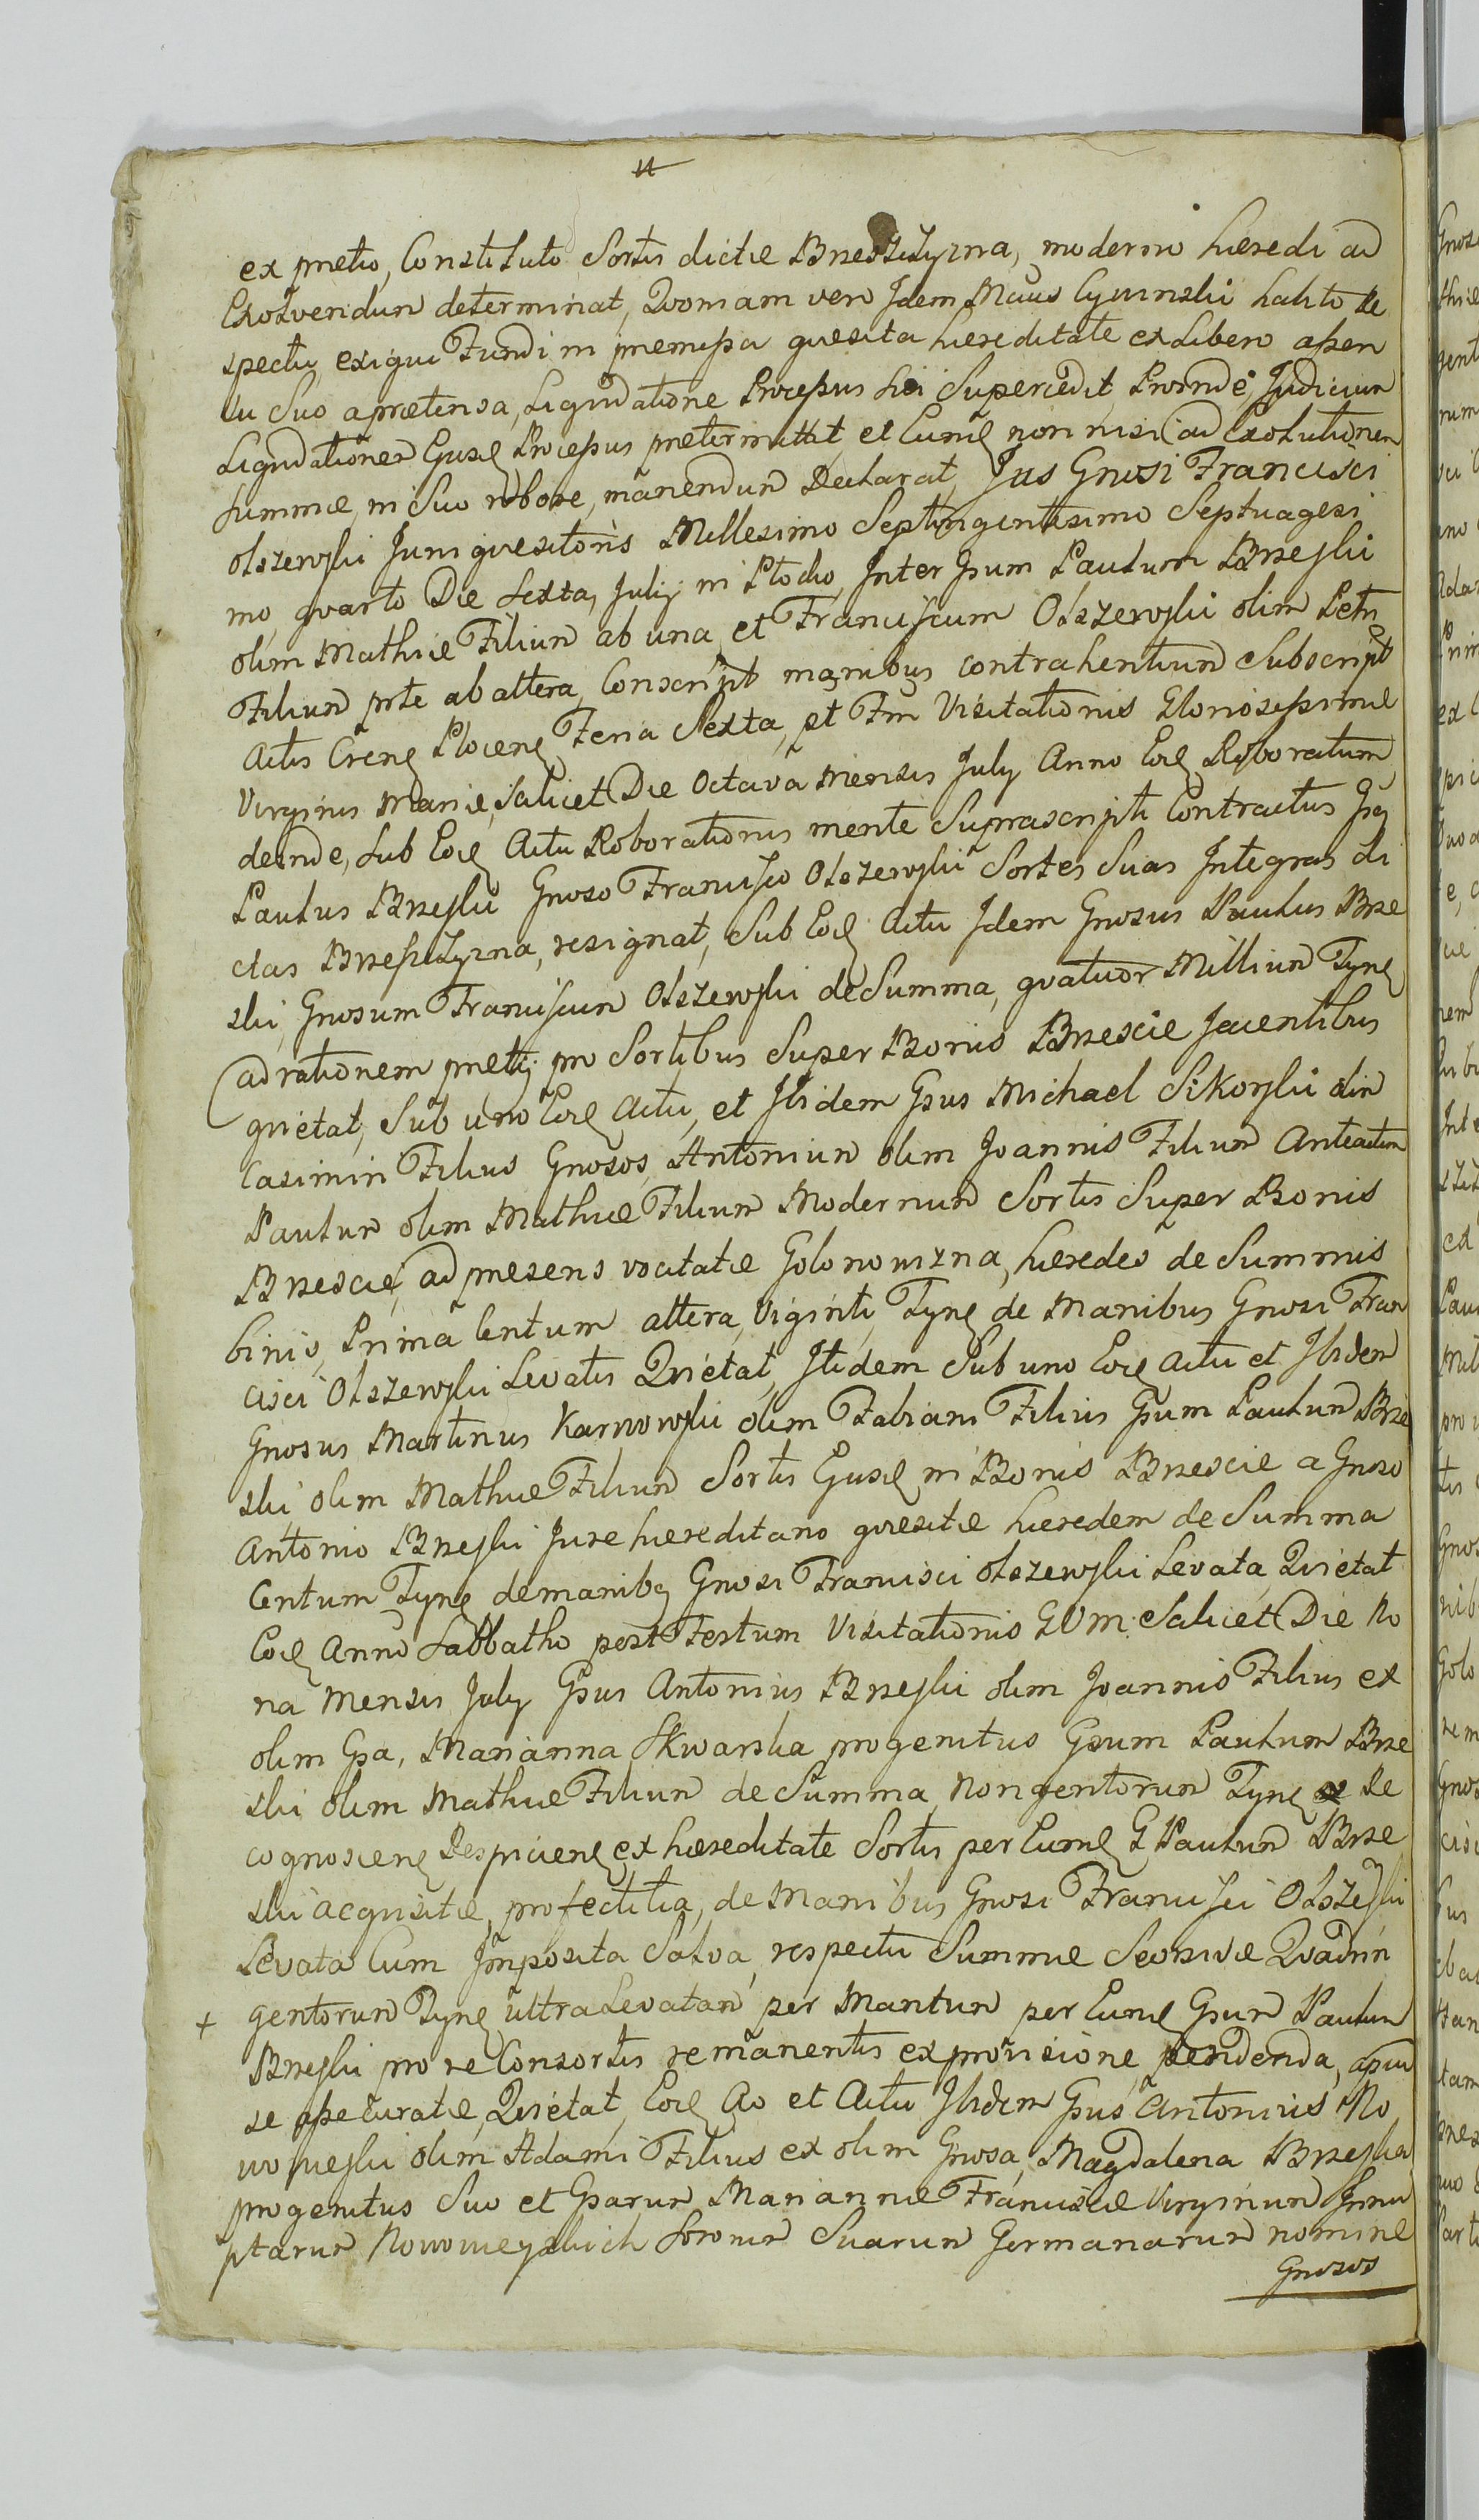 ex pretio, Constituto Sortis dictæ Brzeszczyzna, moderno hæredi ad
Exolvendum determinat, Quoniam vero Idem Mgcus Cyminski habito Re
spectu exigui Fundi in præmissa quæsita hæreditate ex Libero assen
su Suo a prætensa, Liquidatione Processus sui Supercedit, Proinde Judicium
Liquidationem Ejusd Processus prætermittit, et Eund non nisi ad Exolutionem
Summæ, in Suo robore, manendum Declarat, Jus Gnosi Francisci
Olszewski Juri quæsitoris Millesimo Septingentesimo Septuagesi
mo, quarto Die Sexta, July in Plocko, Inter Gsum Paulum Brzeski
olim Mathiæ Filium ab una, et Franciscum Olszewski olim Petri
Filium prte ab altera, Conscript manibus contrahentium Subscript
Actis Crens Plocens Feria Sexta, pt Fm Visitationis Gloriosissimæ
Virginis Mariæ, Scilicet Die Octava Mensis July Anno Eod Roboratum
deinde, Sub Eod Actu Roborationis mente Suprascripti Contractus Gsq
Paulus Brzeski Gnoso Francisco Olszewski Sortes Suas Integras di
ctas Brzeszczyzna, resignat, Sub Eod Actu Idem Gnosus Paulus Brze
ski, Gnosum Franciscum Olszewski de Summa, quatuor Millium Tynf
ad rationem pretij pro Sortibus Super Bonis Brzescie Jacentibus
quietat, Sub uno Eod Actu, et Ibidem Gsus Michael Sikorski olim
Casimiri Filius Gnosos, Antonium olim Joannis Filium Anteactum
Paulum olim Mathiæ Filium Modernum Sortis Super Bonis
Brzescie, ad præsens vocitatæ Golonowizna, hæredes de Summis
binis, Prima Centum altera, Viginti, Tynf de Manibus Gnosi Fran
cisci Olszewski Levatis Quietat, Itidem Sub uno Eod Actu et Ibidem
Gnosus Martinus Karwowski olim Fabiani Filius Gsum Paulum Brze
ski, olim Mathiæ Filium Sortis Ejusd in Bonis Brzescie a Gnoso
Antonio Brzeski Jure hæreditario quæsitæ hæredem de Summa
Centum Tynf de manibq Gnosi Francisci Olszewski Levata, Quietat
Eod Anno Sabbatho post Festum Visitationis GVM: Scilicet Die No
na Mensis July Gsus Antonius Brzeski olim Joannis Filius ex
olim Gsa, Marianna Skwarska progenitus Gsum Paulum Brze
ski olim Mathiæ Filium de Summa, Nongentorum Tynf Re
cognoscens Respiciens ex hæreditate Sortis per Eund G Paulum Brze
ski acquisitæ, profectitia, de Manibus Gnosi Francisci Olszeski
Levata Cum Imposita Salva, respectu Summæ Seorsivæ Quadrin
+ gentorum Tynf ultra Levatam per Mantum per Eund Gsum Paulum
Brzeski pro re Consortis remanentis ex provisione pendenda, apud
se assecuratæ, Quietat, Eod Ao et Actu Ibidem Gsus Antonius No
wowieski olim Adami Filius ex olim Gnosa, Magdalena Brzeska
progenitus Suo et Gsarum Mariannæ Franciscæ Virginum Innu
ptarum Nowowieyskich Sororum Suarum Germanarum nomine
Gnosos